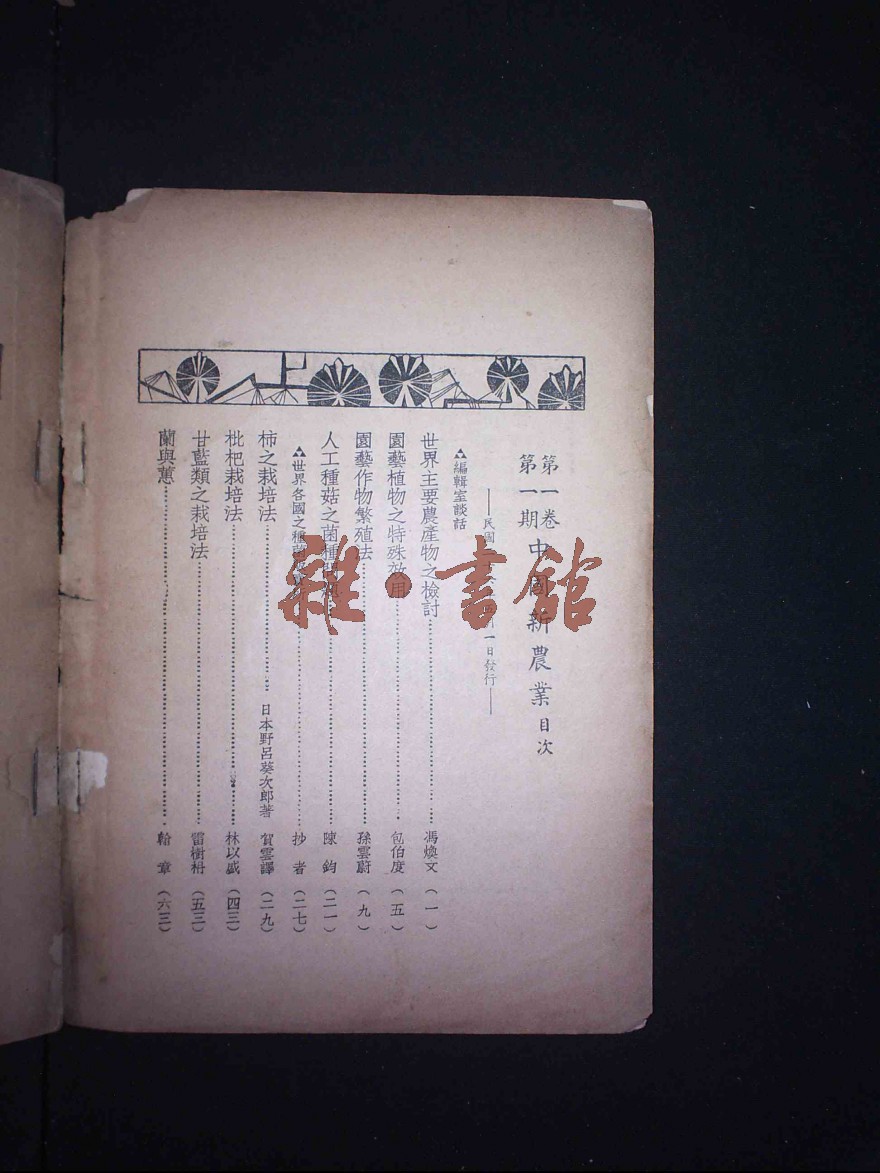 第一卷
第一期
中國新農業目次
——民國 一日發行——
▲編輯室談話
世界主要農產物之檢討…………馮煥文（一）
園藝植物之特殊效用…………包伯度（五）
園藝作物繁殖法…………孫雲蔚（九）
人工種菇之菌種…………陳鈞（二一）
▲世界各國之種菌…………抄者（二七）
柿之栽培法…………日本野呂葵次郎著 賀雲譯（二九）
枇杷栽培法…………林以盛（四三）
甘藍類之栽培法…………雷樹（五三）
蘭與蕙…………章（六三）
雜·書館